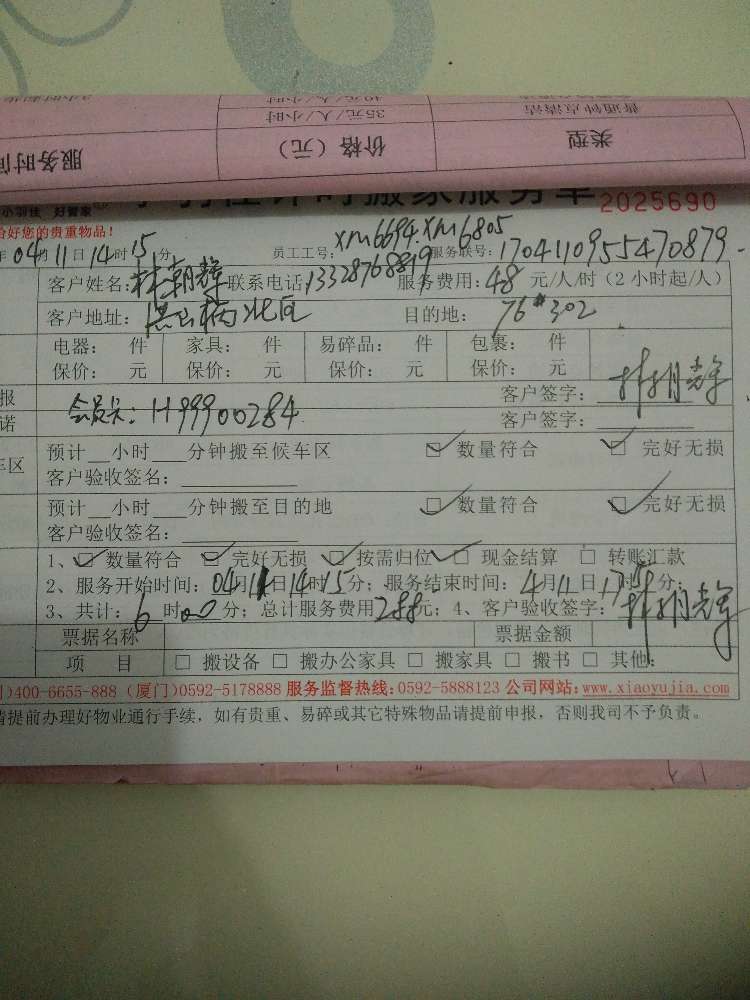 2小时起找 40元/人/小时
35元/人/小时 普通钟点清洁
服务时间 价格（元） 类型
计时搬家服务单 2025690
小羽佳 好管家
好您的贵重物品！
年04月11日14时15分 员工工号：XM6694.XM6805 服务联号：1704110955470879
客户姓名：林朝辉 联系电话：13328768819 服务费用：48 元/人/时（2小时起/人）
客户地址：北区 目的地：76#302
电器： 件 家具： 件 易碎品： 件 包裹： 件
保价： 元 保价： 元 保价： 元 保价： 元
报 客户签字：
诺 会员卡：H99900284 客户签字：
车区 预计__小时___分钟搬至候车区 ☑ 数量符合 ☑ 完好无损
客户验收签名：
预计__小时___分钟搬至目的地 ☑ 数量符合 ☑ 完好无损
客户验收签名：
1、☑ 数量符合 ☑ 完好无损 ☑ 按需归位 ☑ 现金结算 □ 转账汇款
2、服务开始时间：04月11日14时15分；服务结束时间：4月11日17时15分；
3、共计：6时00分；总计服务费用288元；4、客户验收签字：
票据名称 票据金额
项 目 □ 搬设备 □ 搬办公家具 □ 搬家具 □ 搬书 □ 其他：
)400-6655-888（厦门)0592-5178888 服务监督热线：0592-5888123 公司网站：www.xiaoyujia.com
请提前办理好物业通行手续，如有贵重、易碎或其它特殊物品请提前申报，否则我司不予负责。